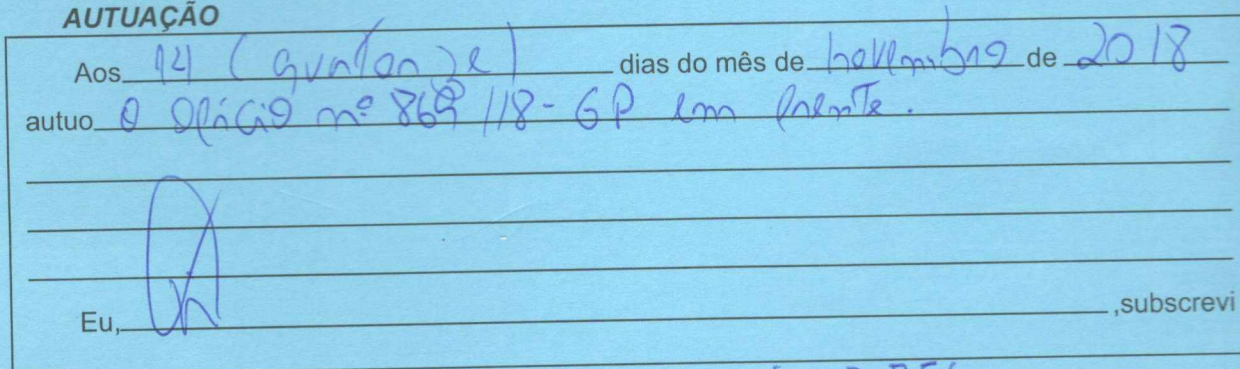 AUTUAÇÃO
Aos 14 (quatorze) dias do mês de novembro de 2018
autuo o Ofício nº 869/18-GP em frente.
Eu, ,subscrevi